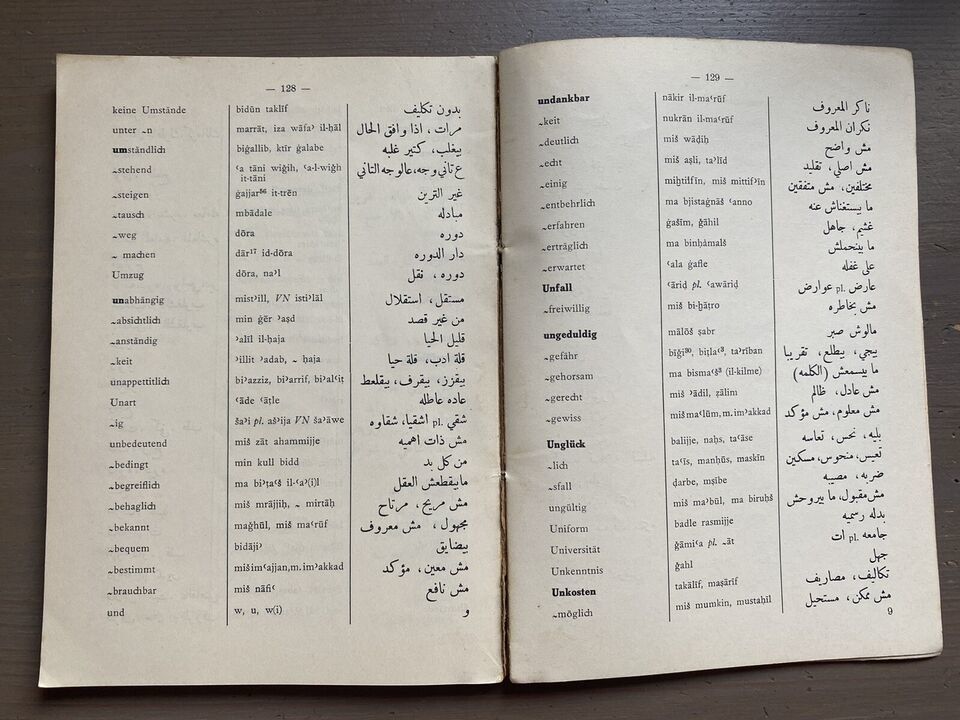 — 128 —
keine Umstände bidūn taklīf بدون تكليف
unter ~n marrāt, iza wāfaʾ il-ḥāl مرات ، اذا وافق الحال
umständlich biġallib, ktīr ġalabe بيغلب، كتير غلبه
~stehend ʿa tāni wiǧih, ʿa-l-wiǧh it-tāni ع تاني وجه، عالوجه التاني
~steigen ġajjar⁵⁶ it-trēn غير الترين
~tausch mbādale مبادله
~weg dōra دوره
~ machen dār¹⁷ id-dōra دار الدوره
Umzug dōra, naʾl دوره ، نقل
unabhängig mistʾill, VN istiʾlāl مستقل ، استقلال
~absichtlich min ġēr ʾaṣd من غير قصد
~anständig ʾalīl il-ḥaja قليل الحيا
~keit ʾillit ʾadab, ~ ḥaja قلة ادب، قلة حيا
unappetitlich biʾazziz, biʾarrif, biʾalʿiṭ بيقزز، بيقرف، بيقلعط
Unart ʿāde ʿāṭle عاده عاطله
~ig šaʾi pl. ašʾija VN šaʾāwe شقي pl. اشقيا، شقاوه
unbedeutend miš zāt ahammijje مش ذات اهميه
~bedingt min kull bidd من كل بد
~begreiflich ma biʾṭaʿš il-ʿaʾ(i)l مابيقطعش العقل
~behaglich miš mrājjiḥ, ~ mirtāḥ مش مريح، مرتاح
~bekannt maǧhūl, miš maʿrūf مجهول ، مش معروف
~bequem biḍājiʾ بيضايق
~bestimmt miš imʿajjan, m. imʾakkad مش معين، مؤكد
~brauchbar miš nāfiʿ مش نافع
und w, u, w(i) و
— 129 —
undankbar nākir il-maʿrūf ناكر المعروف
~keit nukrān il-maʿrūf نكران المعروف
~deutlich miš wāḍiḥ مش واضح
~echt miš aṣli, taʾlīd مش اصلي، تقليد
~einig miḫtilfīn, miš mittifʾīn مختلفين، مش متفقين
~entbehrlich ma bjistaġnāš ʿanno ما بيستغناش عنه
~erfahren ġašīm, ǧāhil غشيم، جاهل
~erträglich ma binḥamalš ما بينحملش
~erwartet ʿala ġafle على غفله
Unfall ʿāriḍ pl. ʿawāriḍ عارض pl. عوارض
~freiwillig miš bi-ḫāṭro مش بخاطره
ungeduldig mālōš ṣabr مالوش صبر
~gefähr bīǧi³⁰, biṭlaʿ³, taʾrīban بيجي، بيطلع، تقريبا
~gehorsam ma bismaʿš³ (il-kilme) ما بيسمعش (الكلمه)
~gerecht miš ʿādil, ẓālim مش عادل، ظالم
~gewiss miš maʿlūm, m. imʾakkad مش معلوم، مش مؤكد
Unglück balijje, naḥs, taʿāse بليه، نحس، تعاسه
~lich taʿīs, manḥūs, maskīn تعيس، منحوس، مسكين
~sfall ḍarbe, mṣībe ضربه، مصيبه
ungültig miš maʾbūl, ma biruḥš مش مقبول، ما بيروحش
Uniform badle rasmijje بدله رسميه
Universität ǧāmiʿa pl. ~āt جامعه pl. ات
Unkenntnis ǧahl جهل
Unkosten takālīf, maṣārīf تكاليف، مصاريف
~möglich miš mumkin, mustaḥīl مش ممكن، مستحيل
9